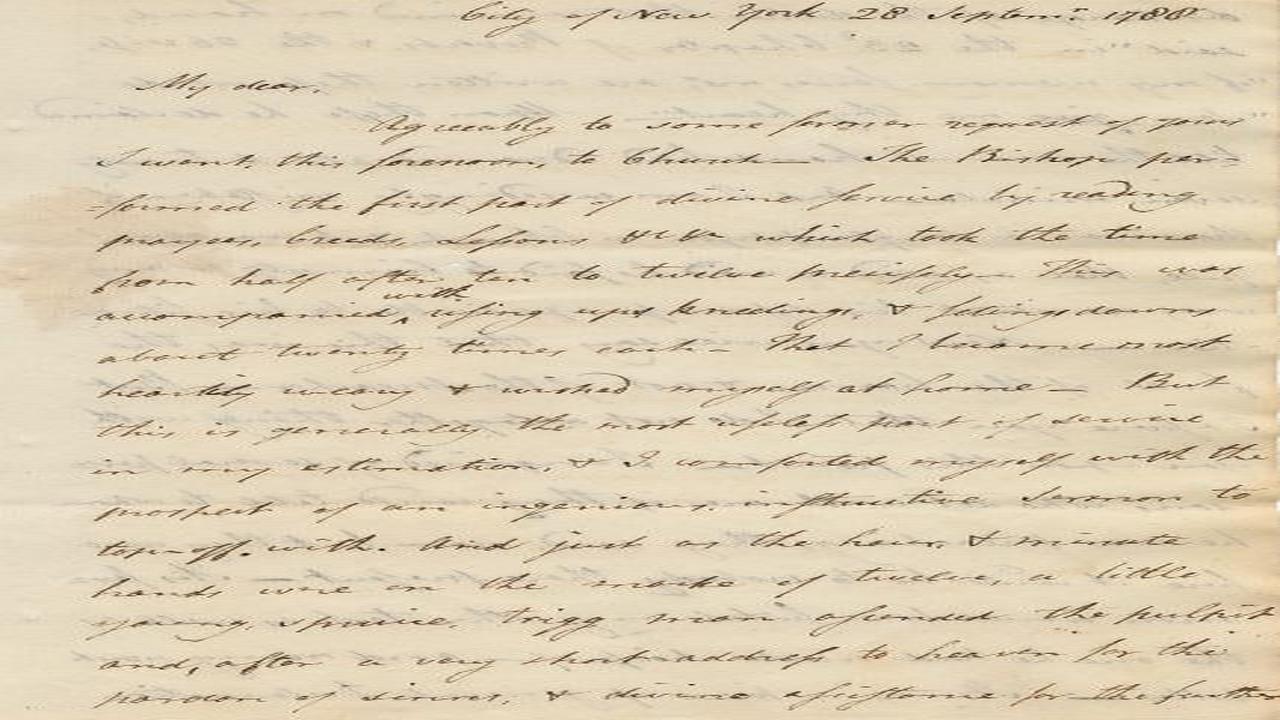 City of New York 28 Septemr. 1788
My dear,
Agreeably to some former request of yours
I went, this forenoon, to Church— The Bishop per-
-formed the first part of divine service by reading
prayers, Creeds, Lessons &c &c which took the time
from half after ten to twelve precissely— This was
with
accompanied, rising ups kneelings, & sitings downs
about twenty times each— That I became most
heartily weary & wished myself at home— But
this is generally the most useless part of service
in my estimation, & I comforted myself with the
prospect of an ingenious, instructive Sermon to
top-off with. And just as the hour, & minute
hands were on the marke of twelve, a little
young, spruice, trigg man asended the pulpit
and, after a very short address to heaven for the
pardon of sinnes, & divine assistance for the further